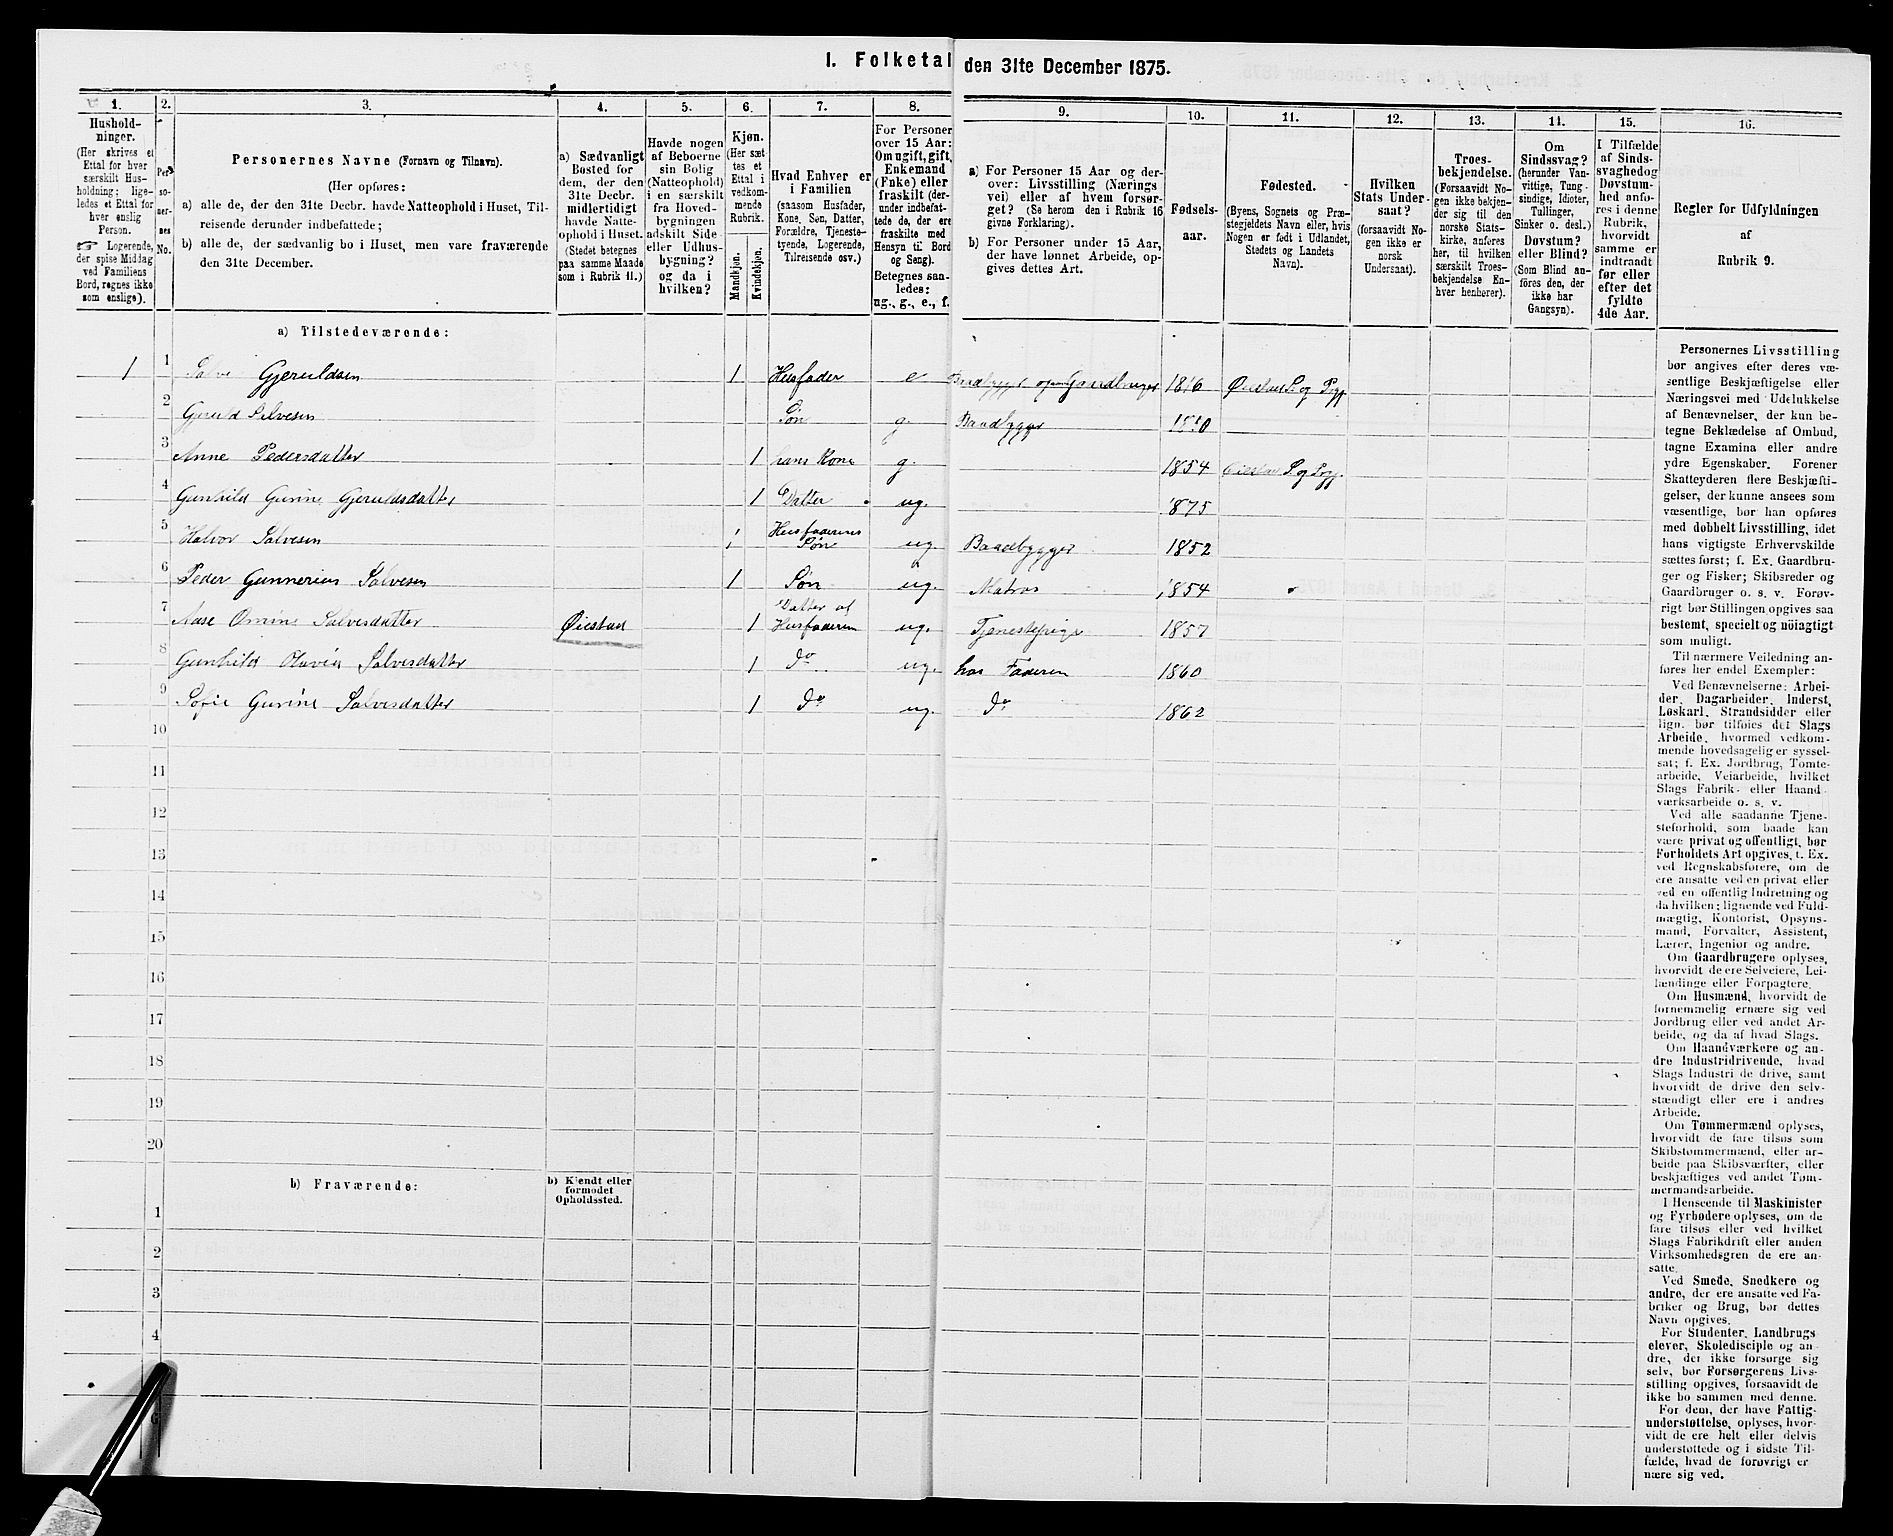 1. Folketal den 31te December 1875.
1.
Hushold-
ninger.
(Her skrives et
Ettal for hver
særskilt Hus-
holdning; lige-
ledes et Ettal for
hver enslig
Person.
☞ Logerende,
der spise Middag
ved Familiens
Bord, regnes ikke
som enslige).
2.
Per-
so-
ner-
nes
No.
3.
Personernes Navne (Fornavn og Tilnavn).
(Her opføres:
a) alle de, der den 31te Decbr. havde Natteophold i Huset, Til-
reisende derunder indbefattede;
b) alle de, der sædvanlig bo i Huset, men vare fraværende
den 31te December.
4.
a) Sædvanligt
Bosted for
dem, der den
31te Decbr.
midlertidigt
havde Natte-
ophold i Huset.
(Stedet betegnes
paa samme Maade
som i Rubrik 11.)
5.
Havde nogen
af Beboerne
sin Bolig
(Natteophold)
i en særskilt
fra Hoved-
bygningen
adskilt Side-
eller Udhus-
bygning?
og da i
hvilken?
6.
Kjøn.
(Her sæt-
tes et
Ettal i
vedkom-
mende
Rubrik.
Mandkjøn.
Kvindekjøn.
7.
Hvad Enhver er
i Familien
(saasom Husfader,
Kone, Søn, Datter,
Forældre, Tjeneste-
tyende, Logerende,
Tilreisende osv.)
8.
For Personer
over 15 Aar:
Om ugift, gift,
Enkemand
(Enke) eller
fraskilt (der-
under indbefat-
tede de, der ere
fraskilte med
Hensyn til Bord
og Seng).
Betegnes saa-
ledes:
ug., g., e., f.
9.
a) For Personer 15 Aar og der-
over: Livsstilling (Nærings
vei) eller af hvem forsør-
get? (Se herom den i Rubrik 16
givne Forklaring).
b) For Personer under 15 Aar,
der have lønnet Arbeide, op-
gives dettes Art.
10.
Fødsels-
aar.
11.
Fødested.
(Byens, Sognets og Præ-
stegjeldets Navn eller, hvis
Nogen er født i Udlandet,
Stedets og Landets
Navn).
12.
Hvilken
Stats Under-
saat?
(forsaavidt No-
gen ikke er
norsk
Undersaat).
13.
Troes-
bekjendelse.
(Forsaavidt No-
gen ikke bekjen-
der sig til den
norske Stats-
kirke, anføres
her, til hvilken
særskilt Troes-
bekjendelse En-
hver henhører).
14.
Om
Sindssvag?
(herunder Van-
vittige, Tung-
sindige, Idioter,
Tullinger,
Sinker o. desl.)
Døvstum?
eller Blind?
(Som Blind an-
føres den, der
ikke har
Gangsyn).
15.
I Tilfælde
af Sinds-
svaghed og
Døvstum-
hed anfø-
res i denne
Rubrik,
hvorvidt
samme er
indtraadt
før eller
efter det
fyldte
4de Aar.
16.
Regler for Udfyldningen
af
Rubrik 9.
a) Tilstedeværende:
1 1 Salve Gjeruldsen 1 Husfader e Baadbygger og Gaardbruger 1816 Øiestad S. og Pgj
2 Gjeruld Salvesen Søn g. Baadbygger 1850
3 Anne Pedersdatter 1 hans Kone g. 1854 Øiestad S. og Pgj.
4 Gunhild Gurine Gjeruldsdatter 1 Datter ug. 1875
5 Halvor Salvesen 1 Husfaderens Søn ug. Baadbygger 1852
6 Peder Gunnerius Salvesen 1 Søn ug. Matros 1854
7 Aase Omine Salvesdatter Øiestad 1 Datter af Husfaderen ug. Tjenestepige 1857
8 Gunhild Olavia Salvesdatter 1 do ug. hos Faderen 1860
9 Sofie Gurine Salvesdatter 1 do ug. do 1862
10
11
12
13
14
15
16
17
18
19
20
b) Fraværende:
b) Kjendt eller
formodet
Opholdssted.
1
2
3
4
6
Personernes Livsstilling
bør angives efter deres væ-
sentlige Beskjæftigelse eller
Næringsvei med Udelukkelse
af Benævnelser, der kun be-
tegne Beklædelse af Ombud,
tagne Examina eller andre
ydre Egenskaber. Forener
Skatteyderen flere Beskjæfti-
gelser, der kunne ansees som
væsentlige, bør han opføres
med dobbelt Livsstilling, idet
hans vigtigste Erhvervskilde
sættes først; f. Ex. Gaardbru-
ger og Fisker; Skibsreder og
Gaardbruger o. s. v. Forøv-
rigt bør Stillingen opgives saa
bestemt, specielt og nöiagtigt
som muligt.
Til nærmere Veiledning an-
føres her endel Exempler:
Ved Benævnelserne: Arbei-
der, Dagarbeider, Inderst,
Løskarl, Strandsidder eller
lign. bør tilføies det Slags
Arbeide, hvormed vedkom-
mende hovedsagelig er syssel-
sat; f. Ex. Jordbrug, Tomte-
arbeide, Veiarbeide, hvilket
Slags Fabrik- eller Haand-
værksarbeide o. s. v.
Ved alle saadanne Tjene-
steforhold, som baade kan
være privat og offentligt, bør
Forholdets Art opgives, t. Ex.
ved Regnskabsførere, om de
ere ansatte ved en privat eller
ved en offentlig Indretning og
da hvilken; lignende ved Fuld-
mægtig, Kontorist, Opsyns-
mand, Forvalter, Assistent,
Lærer, Ingeniør og andre.
Om Gaardbrugere oplyses,
hvorvidt de ere Selveiere, Lei-
lændinge eller Forpagtere.
Om Husmænd, hvorvidt de
fornemmelig ernære sig ved
Jordbrug eller ved andet Ar-
beide, og da af hvad Slags.
Om Haandværkere og an-
dre Industridrivende, hvad
Slags Industri de drive, samt
hvorvidt de drive den selv-
stændigt eller ere i andres
Arbeide.
Om Tømmermænd oplyses,
hvorvidt de fare tilsøs som
Skibstømmermænd, eller ar-
beide paa Skibsværfter, eller
beskjæftiges ved andet Tøm-
mermandsarbeide.
I Henseende til Maskinister
og Fyrbødere oplyses, om de
fare tilsøs eller ved hvilket
Slags Fabrikdrift eller anden
Virksomhedsgren de ere an-
satte.
Ved Smede, Snedkere og
andre, der ere ansatte ved Fa-
briker og Brug, bør dettes
Navn opgives.
For Studenter, Landbrugs
elever, Skoledisciple og an-
dre, der ikke forsørge sig
selv, bør Forsørgerens Livs-
stilling opgives, forsaavidt de
ikke bo sammen med denne.
For dem, der have Fattig-
understøttelse, oplyses, hvor-
vidt de ere helt eller delvis
understøttede og i sidste Til-
fælde, hvad de forøvrigt er
nære sig ved.